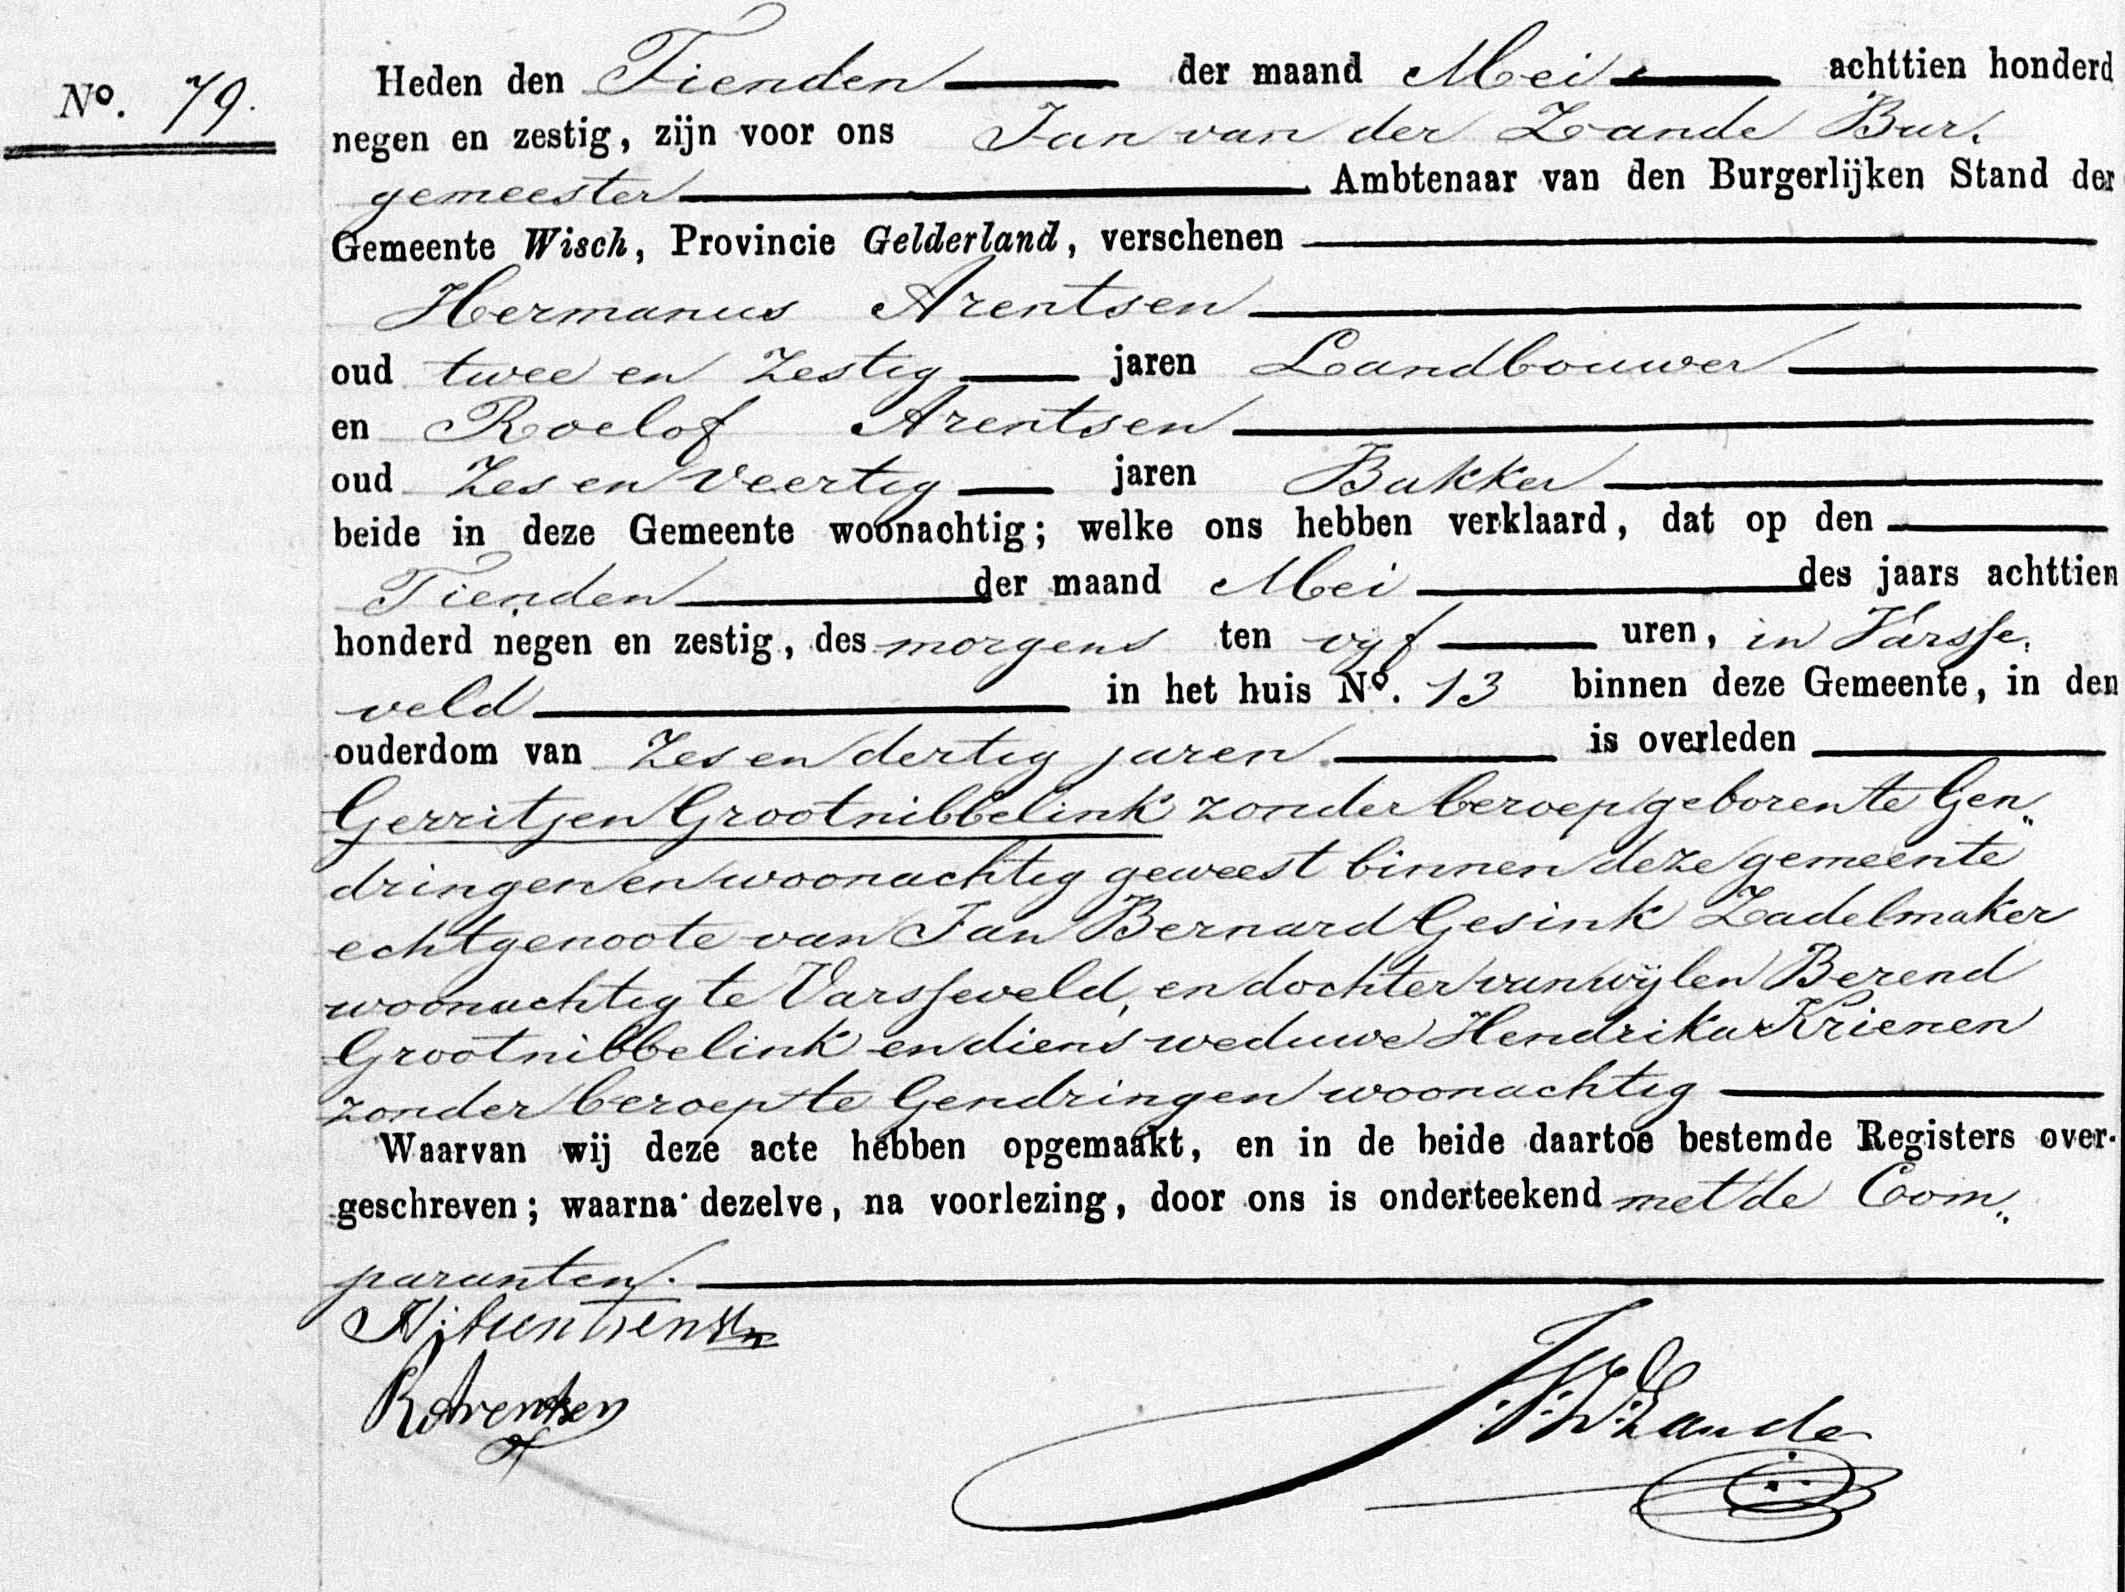 Nº. 79.
Heden den Tienden der maand Mei achttien honderd
negen en zestig, zijn voor ons Jan van der Zande Bur.
gemeester Ambtenaar van den Burgerlijken Stand der
Gemeente Wisch, Provincie Gelderland, verschenen
Hermanus Arentsen
oud twee en Zestig jaren Landbouwer
en Roelof Arentsen
oud Zes en Veertig jaren Bakker
beide in deze Gemeente woonachtig; welke ons hebben verklaard, dat op den
Tienden der maand Mei des jaars achttien
honderd negen en zestig, des morgens ten vijf uren, in Varsse.
veld in het huis Nº. 13 binnen deze Gemeente, in den
ouderdom van Zes en dertig jaren is overleden
Gerritjen Grootnibbelink zonder beroep geboren te Gen„
dringen en woonachtig geweest binnen deze gemeente
echtgenoote van Jan Bernard Gesink Zadelmaker
woonachtig te Varsseveld, en dochter van wijlen Berend
Grootnibbelink en diens weduwe Hendrika Krienen
zonder beroep te Gendringen woonachtig
Waarvan wij deze acte hebben opgemaakt, en in de beide daartoe bestemde Registers over-
geschreven; waarna dezelve, na voorlezing, door ons is onderteekend met de Com„
paranten.
R Arentsen
Zande